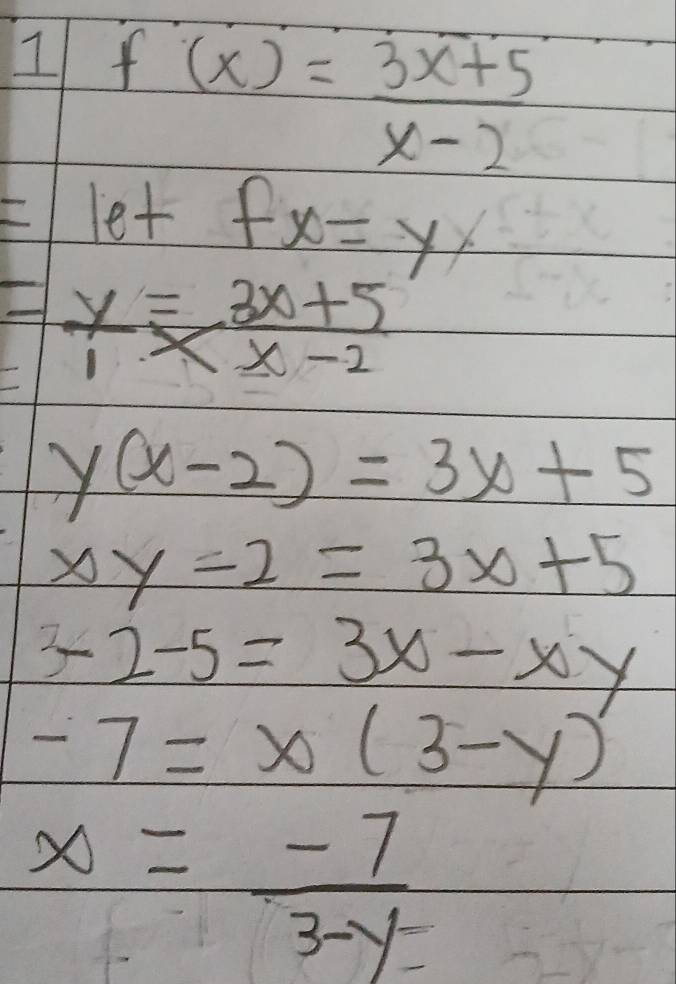 1 f(x) = 3x+5
x-2
= let fx = y
= y = 3x+5
1 x-2
=
y(x-2) = 3x+5
xy-2 = 3x+5
-2-5 = 3x-xy
-7 = x(3-y)
x = -7
3-y =